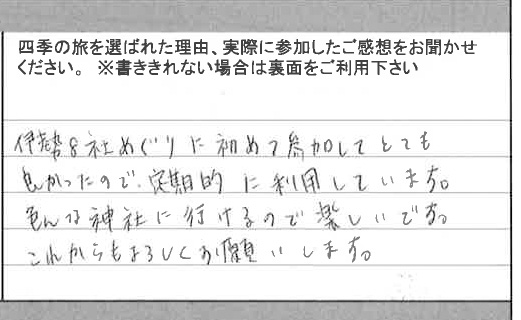 四季の旅を選ばれた理由、実際に参加したご感想をお聞かせ
ください。 ※書ききれない場合は裏面をご利用下さい
伊勢8社めぐりに初めて参加してとても
良かったので、定期的に利用しています。
色んな神社に行けるので楽しいです。
これからもよろしくお願いします。